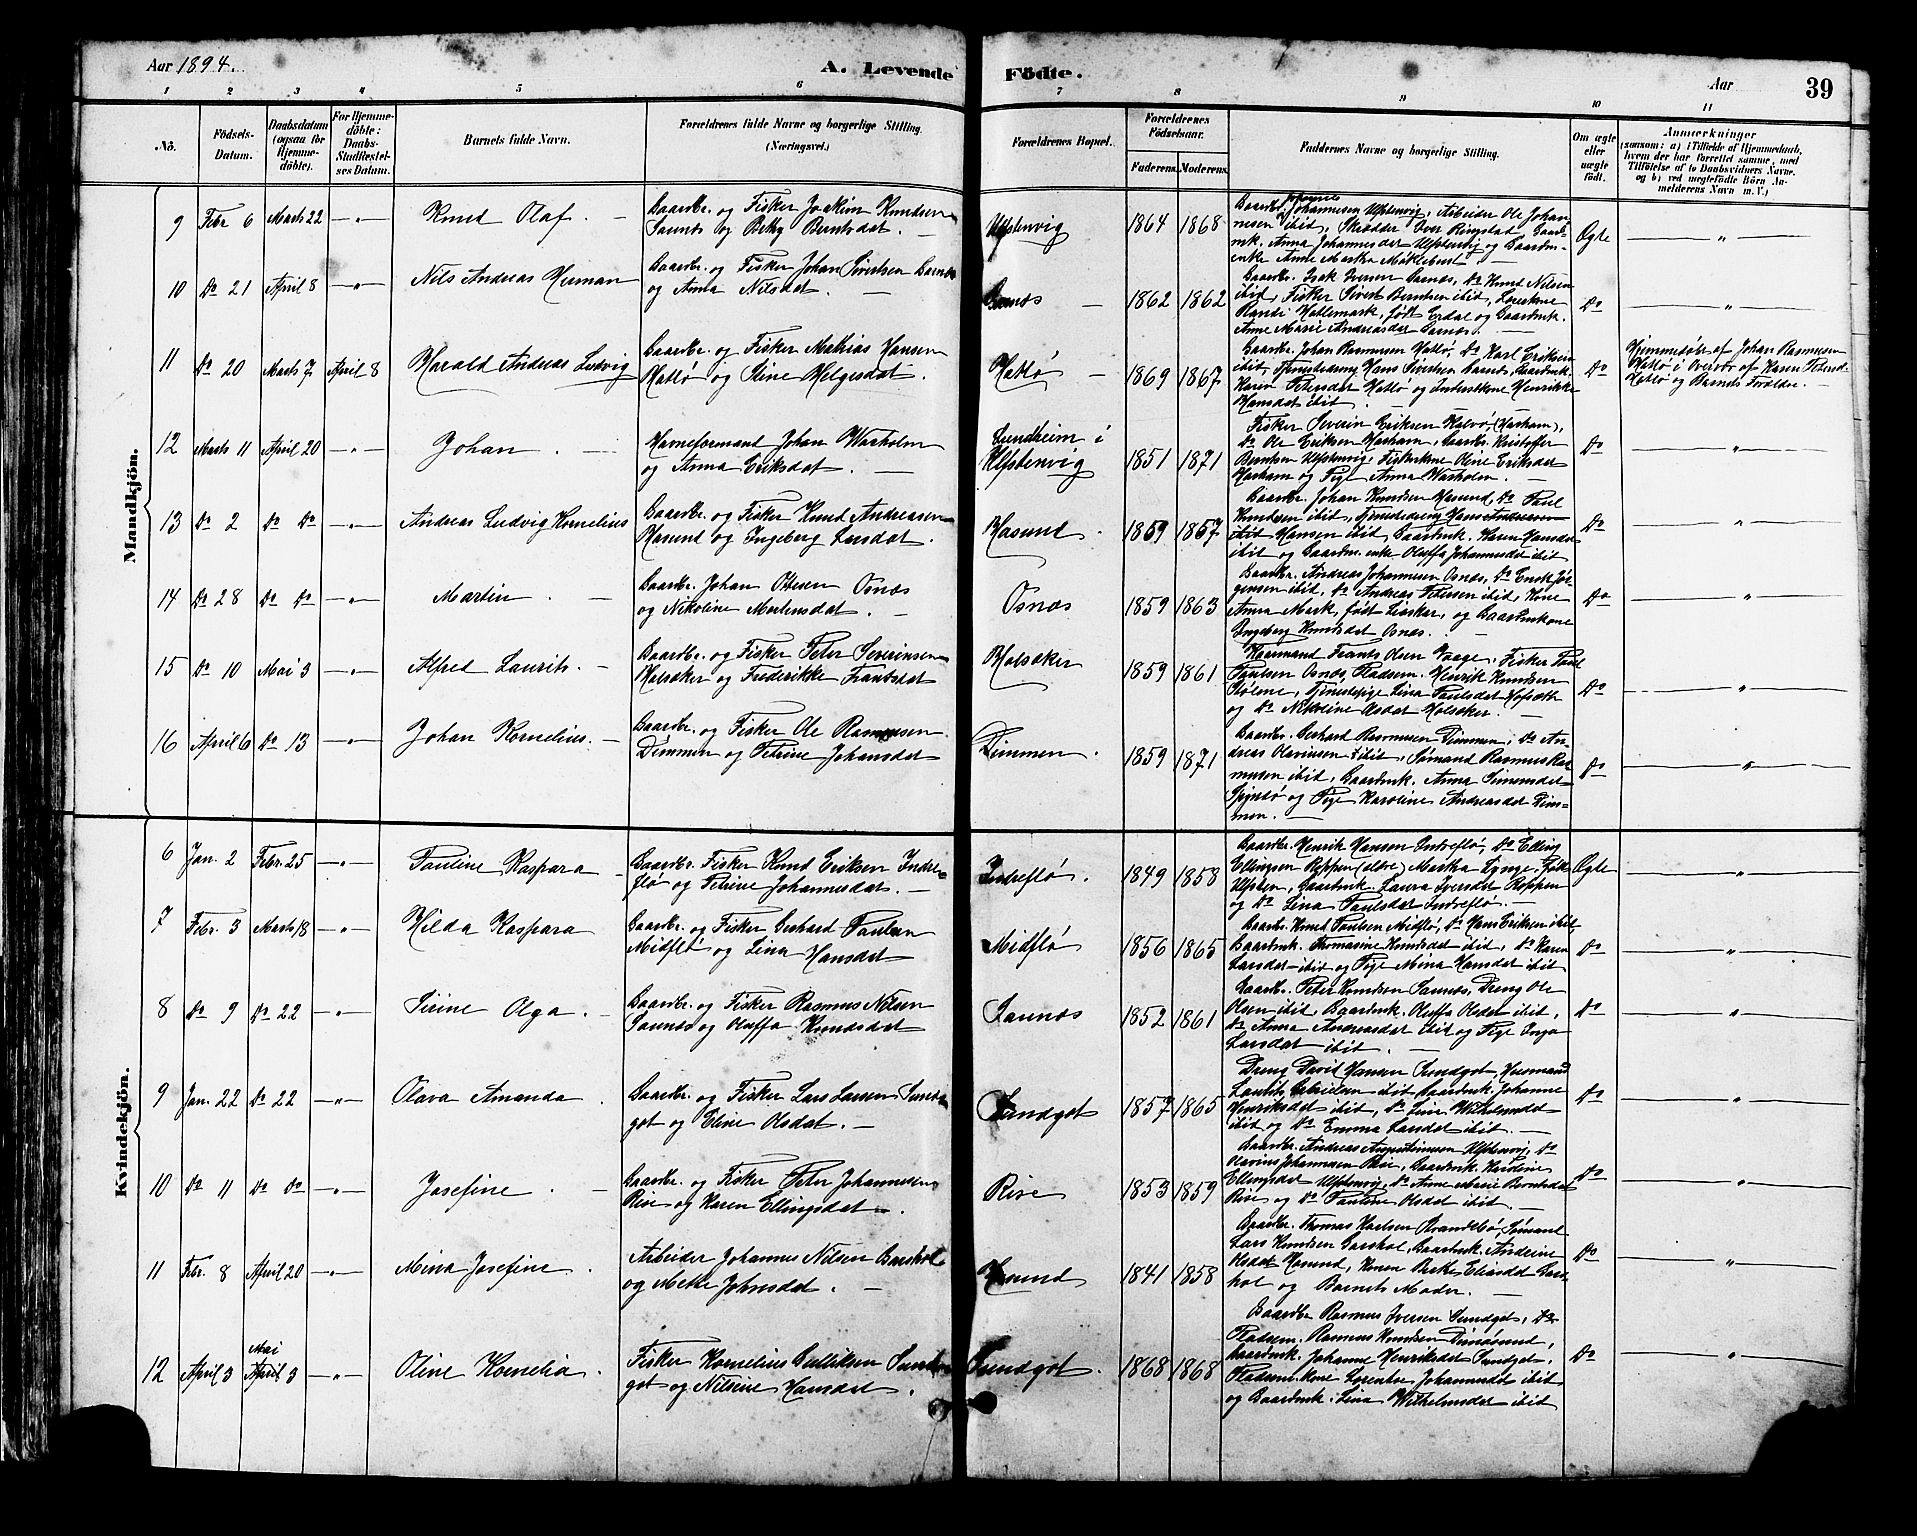 Aar 1894.
A. Levende
Födte.
Aar
39
1 2 3 4 5 6 7 8 9 10 11
No.
Födsels-Datum.
Daabsdatum (ogsaa for Hjemme-döbte).
For Hjemme-döbte: Daabs-Stadfæstel-ses Datum.
Barnets fulde Navn.
Forældrenes fulde Navne og borgerlige Stilling.
(Næringsvei.)
Forældrenes Bopæl.
Forældrenes Födselsaar.
Faderens. Moderens.
Faddernes Navne og borgerlige Stilling.
Om ægte eller uægte födt.
Anmærkninger
(saasom: a) i Tilfælde af Hjemmedaab,
hvem der har forrettet samme, med
Tilföielse af to Daabsvidners Navne,
og b) ved uægtefödte Börn An-
melderens Navn m. V.)
Mandkjön.
9 Febr 6 Marts 22 —"— Knud Olaf. — Gaardbr. og Fisker Joakim Knudsen
Saunes og Betzy Berntsdat. —
Ulfstenvig 1864 1868
Johannesen Ulfstenvig, Arbeider Ole Johan-
nesen ibid, Skrædder Iver Ringstad Gaard-
mk. Anna Johannesdat Ulfstenvig og Gaardm-
enke Anne Marta Myklebust. —
Ægte — " —
10 Do 21 April 8 —"— Nils Andreas Herman Gaardbr. og Fisker Johan Sivertsen Garnes
og Anna Nilsdat. —
Garnes — 1862 1862
Gaardbr. Isak Iversen Garnes, Do Knud Nilsen
ibid, Fisker Sivert Berntsen ibid, Løsk.kone
Randi Hatlemark, født Erdal og Gaardmk.
Anne Marie Andreasdat Garnes. —
Do — " —
11 Do 20 Marts 7 April 8 Harald Andreas Ludvig Gaardbr. og Fisker Mathias Hansen
Hatlø og Stine Helgesdat. —
Hatlø — 1869 1867
Gaardbr. Johan Rasmussen Hatlø, Do Karl Eriksen
ibid, Tjenestedreng Hans Sivertsen Garnes, Gaardmk.
Karen Petersdat Hatlø og Inderstkone Henrikke
Hansdat ibid. —
Do
Hjemmedøbt af Johan Rasmussen
Hatlø i Overvær af Karen Petersd.
Hatlø og Barnets Forældre. —
12 Marts 11 April 20 —"— Johan. — Havneformand Johan Waxholm
og Anna Eriksdat. —
Sundheim i
Ulfstenvig 1851 1871
Fisker Severin Eriksen Kalvø, (Harham),
Do Ole Eriksen Harham, Gaardbr. Kristoffer
Berntsen Ulfstenvig, Fiskerkone Oline Eriksdat
Harham og Pige Anna Waxholm. —
Do — " —
13 Do 2 Do Do —"— Andreas Ludvig Kornelius Gaardbr. og Fisker Knud Andreasen
Hasund og Ingeborg Larsdat.
Hasund. 1859 1857
Gaardbr. Johan Knudsen Hasund, Do Paul
Knudsen ibid, Tjenestedreng Hans Andreasen
ibid Hansen ibid, Gaardmk. Karen Hansdat
ibid og Gaardm. enke Oluffa Johannesdat ibid
Do — " —
14 Do 28 Do Do —"— Martin. — Gaardbr. Johan Ottesen Osnæs
og Nikoline Mortensdat. —
Osnæs 1859 1863
Gaardbr. Andreas Johannesen Osnæs, Do Enok Jør-
gensen ibid, Do Andreas Petersen ibid, Kone
Anna Mark, født Løskar, og Gaardmkone
Ingeborg Knudsdat Osnæs. —
Do — " —
15 Do 10 Mai 3 —"— Alfred Laurits. — Gaardbr. og Fisker Peter Severinsen
Holsøker og Frederikke Frantsdat
Holsøker 1859 1861
Husmand Frants Olsen Haage, Fisker Paul
Paulsen Osnæs, Pladsem. Henrik Knudsen
Stølene, Tjenestepige Lina Paulsdat Hofsæth
og Do Nikoline Olsdat Holsøker. —
Do — " —
16 April 6 Do 13 —"— Johan Kornelius. — Gaardbr. og Fisker Ole Rasmussen
Dimmen og Petrine Johansdat
Dimmen. 1859 1871
Gaardbr. Gerhard Rasmussen Dimmen, Do An-
dreas Olavinsen ibid, Sømand Rasmus Ras-
mussen ibid, Gaardmk. Anna Simonsdat
og Pige Karoline Andreasdat Dim-
men. —
Do — " —
Kvindekjön.
6 Jan. 2 Febr. 25 —"— Pauline Kaspara — Gaardbr. Fisker Knud Eriksen Indre-
flø og Petrine Johannesdat. —
Indreflø. 1849 1858
Gaardbr. Henrik Hansen Indreflø, Do Elling
Ellingsen Roppen (eldre) Martha Lynge, født
Ulfsten, Gaardmk. Laura Iversdat Roppen
og Do Lina Paulsdat Indreflø. —
Ægte — " —
7 Febr. 3 Marts 18 —"— Hilda Kaspara Gaardbr. og Fisker Gerhard Paulsen
Midflø og Lina Hansdat
Midflø 1856 1865
Gaardbr. Knud Paulsen Midflø, Do Hans Eriksen ibid
Gaardmk. Thomasine Knudsdat ibid, Do Karen
Larsdat ibid og Pige Mina Hansdat ibid
Do — " —
8 Do 9 Do 22 —"— Sirine Olga. Gaardbr. og Fisker Rasmus Nilsen
Saunes og Oluffa Knudsdat
Saunes 1852 1861
Gaardbr. Peter Knudsen Saunes, Dreng Ole
Olsen ibid, Gaardmk. Oluffa Olsdat ibid,
Do Anna Andreasdat ibid og Pige Inga
Larsdat ibid. —
Do — " —
9 Jan. 22 Do 22 —"— Olava Amanda. Gaardbr. og Fisker Lars Larsen Sund-
got og Eline Olsdat. —
Sundgot 1857 1865
Dreng David Hansen Sundgot, Husmand
Laurits Gabrielsen ibid Gaardmk. Johanne
Henriksdat ibid, Do Lina Wilhelmsdat
ibid og Do Emma Larsdat ibid. —
Do — " —
10 Do 11 Do Do —"— Josefine. — Gaardbr. og Fisker Peter Johannesen
Rise og Karen Ellingsdat. —
Rise 1853 1859
Gaardbr. Andreas Augustinusen Ulfstenvig, Do
Olavius Johannesen Rise, Gaardmk. Kristine
Ellingsdat Ulfstenvig, Do Anne Marie Berntsdat
Rise og Do Pauline Olsdat ibid. —
Do — " —
11 Febr. 8 April 20 —"— Mina Josefine. Arbeider Johannes Nilsen Garshol
og Mette Johnsdat. —
Hasund 1841 1858
Gaardbr. Thomas Karlsen Strandebø, Sømand
Lars Knudsen Garshol, Gaardmk. Andrine
Olsdat Hasund, Konen Berte Eliasdat Gars-
hol og Barnets Moder. —
Do — " —
12 April 3 Mai April 3 —"— Oline Kornelia. Fisker Kornelius Gulliksen Sund-
got og Nilsine Hansdat.
Sundgot. 1868 1868
Gaardbr Rasmus Iversen Sundgot, Do
Pladsem. Rasmus Knudsen Dimøsund,
Gaardmk. Johanne Henriksdat Sundgot.
Pladsem. Kone Lorentse Johannesdat ibid,
og Gaardmk. Lina Wilhelmsdat ibid
Do — " —